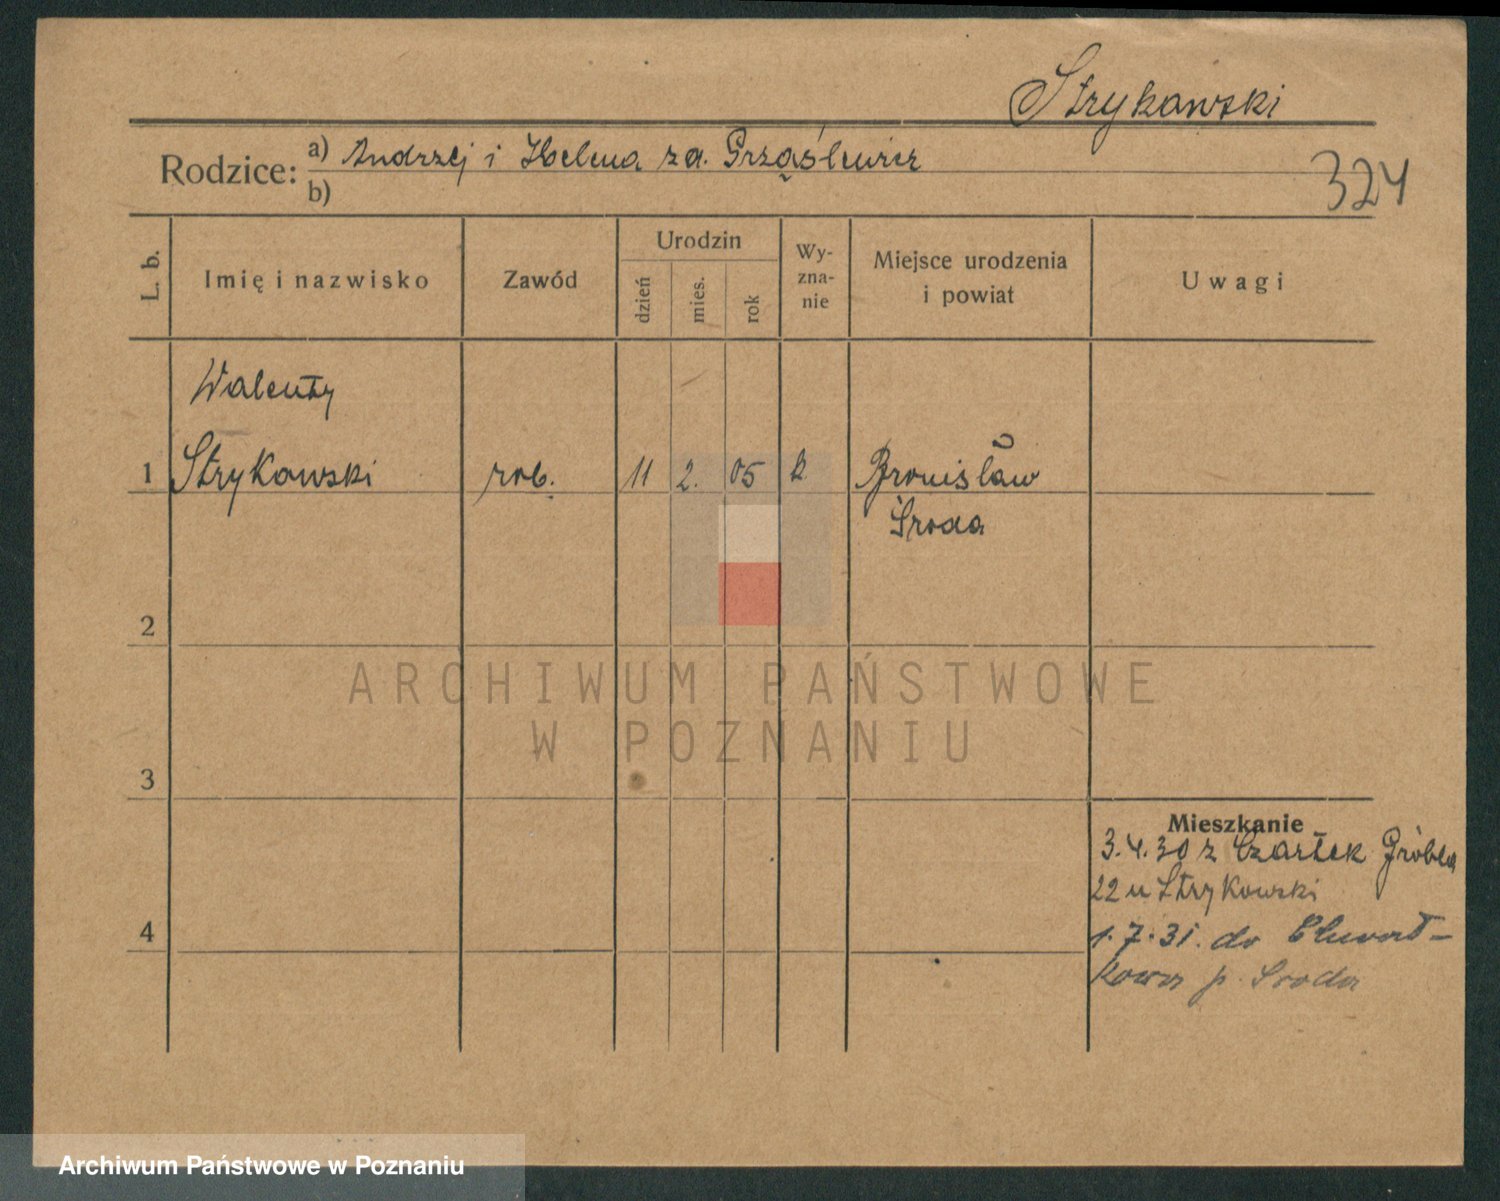 Strykowski
Rodzice: a) Andrzej i Helena za. Grząślewicz
b)
324
L. b.
Imię i nazwisko
Zawód
Urodzin
dzień
mies.
rok
Wy-
zna-
nie
Miejsce urodzenia
i powiat
Uwagi
Walenty
1 Strykowski rob. 11 2. 05 k Bronisław
Środa
2
ARCHIWUM PAŃSTWOWE
W POZNANIU
3
Mieszkanie
3.4.30 z Czartek Grobla
22 u Strykowski
4
1.7.31. do Chwał-
kowa p. Sroda
Archiwum Państwowe w Poznaniu